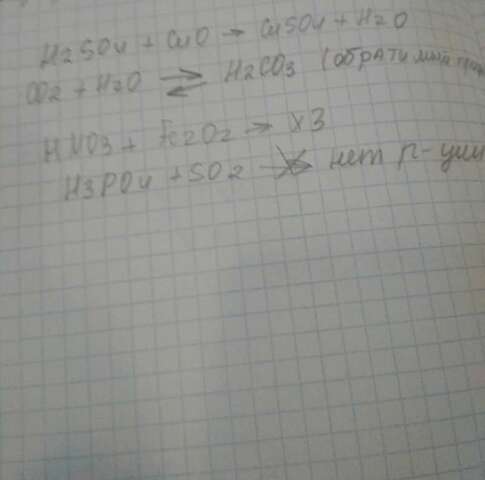 H2SO4 + CuO → CuSO4 + H2O
CO2 + H2O ⇌ H2CO3 (обратимый
HNO3 + Fe2O2 → х3
H3PO4 + SO2 ↛ нет р-ции